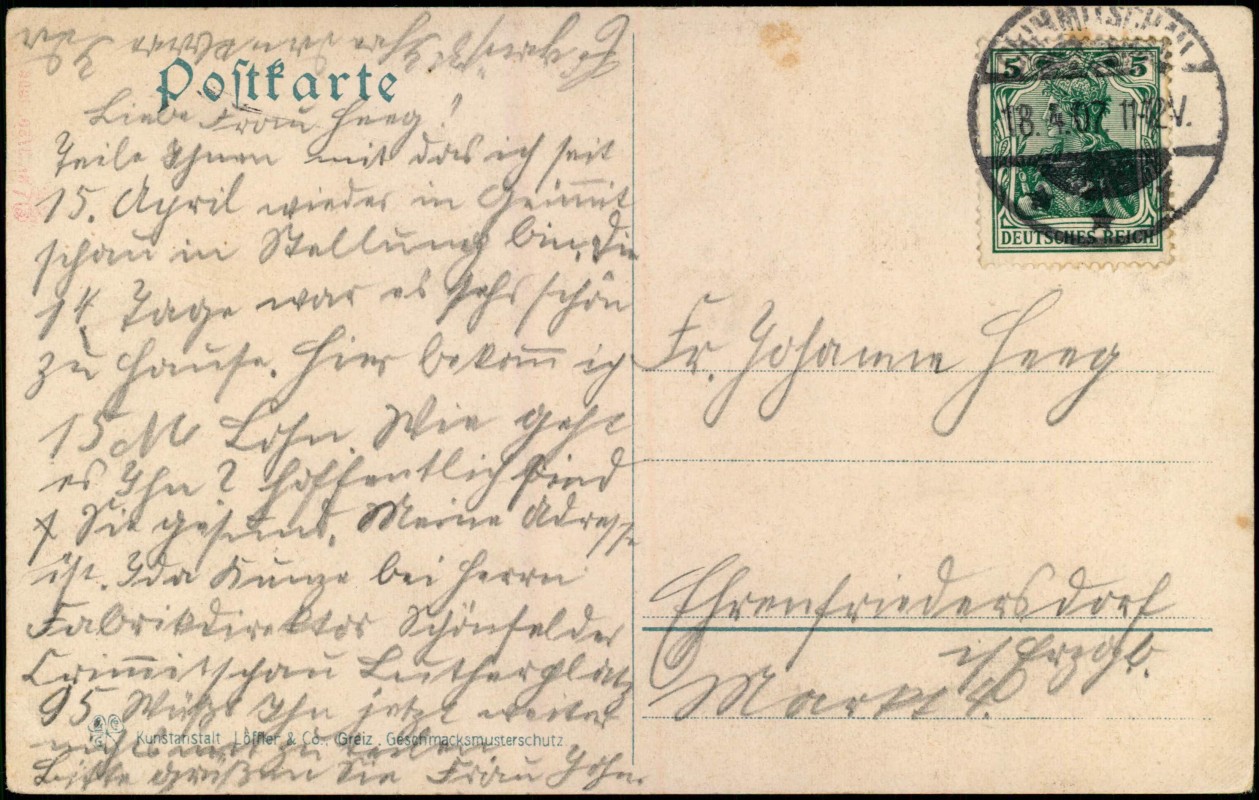 Postkarte
Liebe Frau Heeg!
Teile Ihnen mit das ich seit
15. April wieder in Crim̅it
schau in Stellung bin. Die
14 Tage war es sehr schön
zu Hause. Hier bekom̅ ich
15 M Lohn. Wie geht
es Ihn? Hoffentlich sind
Sie gesund. Meine Adresse
ist. Ida Kunze bei Herrn
Fabrikdirektor Schönfelder
Crim̅itschau Lutherplatz
95. Wüßt Ihn jetzt weiter
nichts mehr zu
Bitte grüßen Sie Frau John.
Kunstanstalt Löffler & Co., Greiz. Geschmacksmusterschutz.
5 5
DEUTSCHES REICH
CRIMMITSCHAU
18.4.07 11-12V.
Fr. Johanne Heeg
Ehrenfriedersdorf
i/Erzgb.
Markt